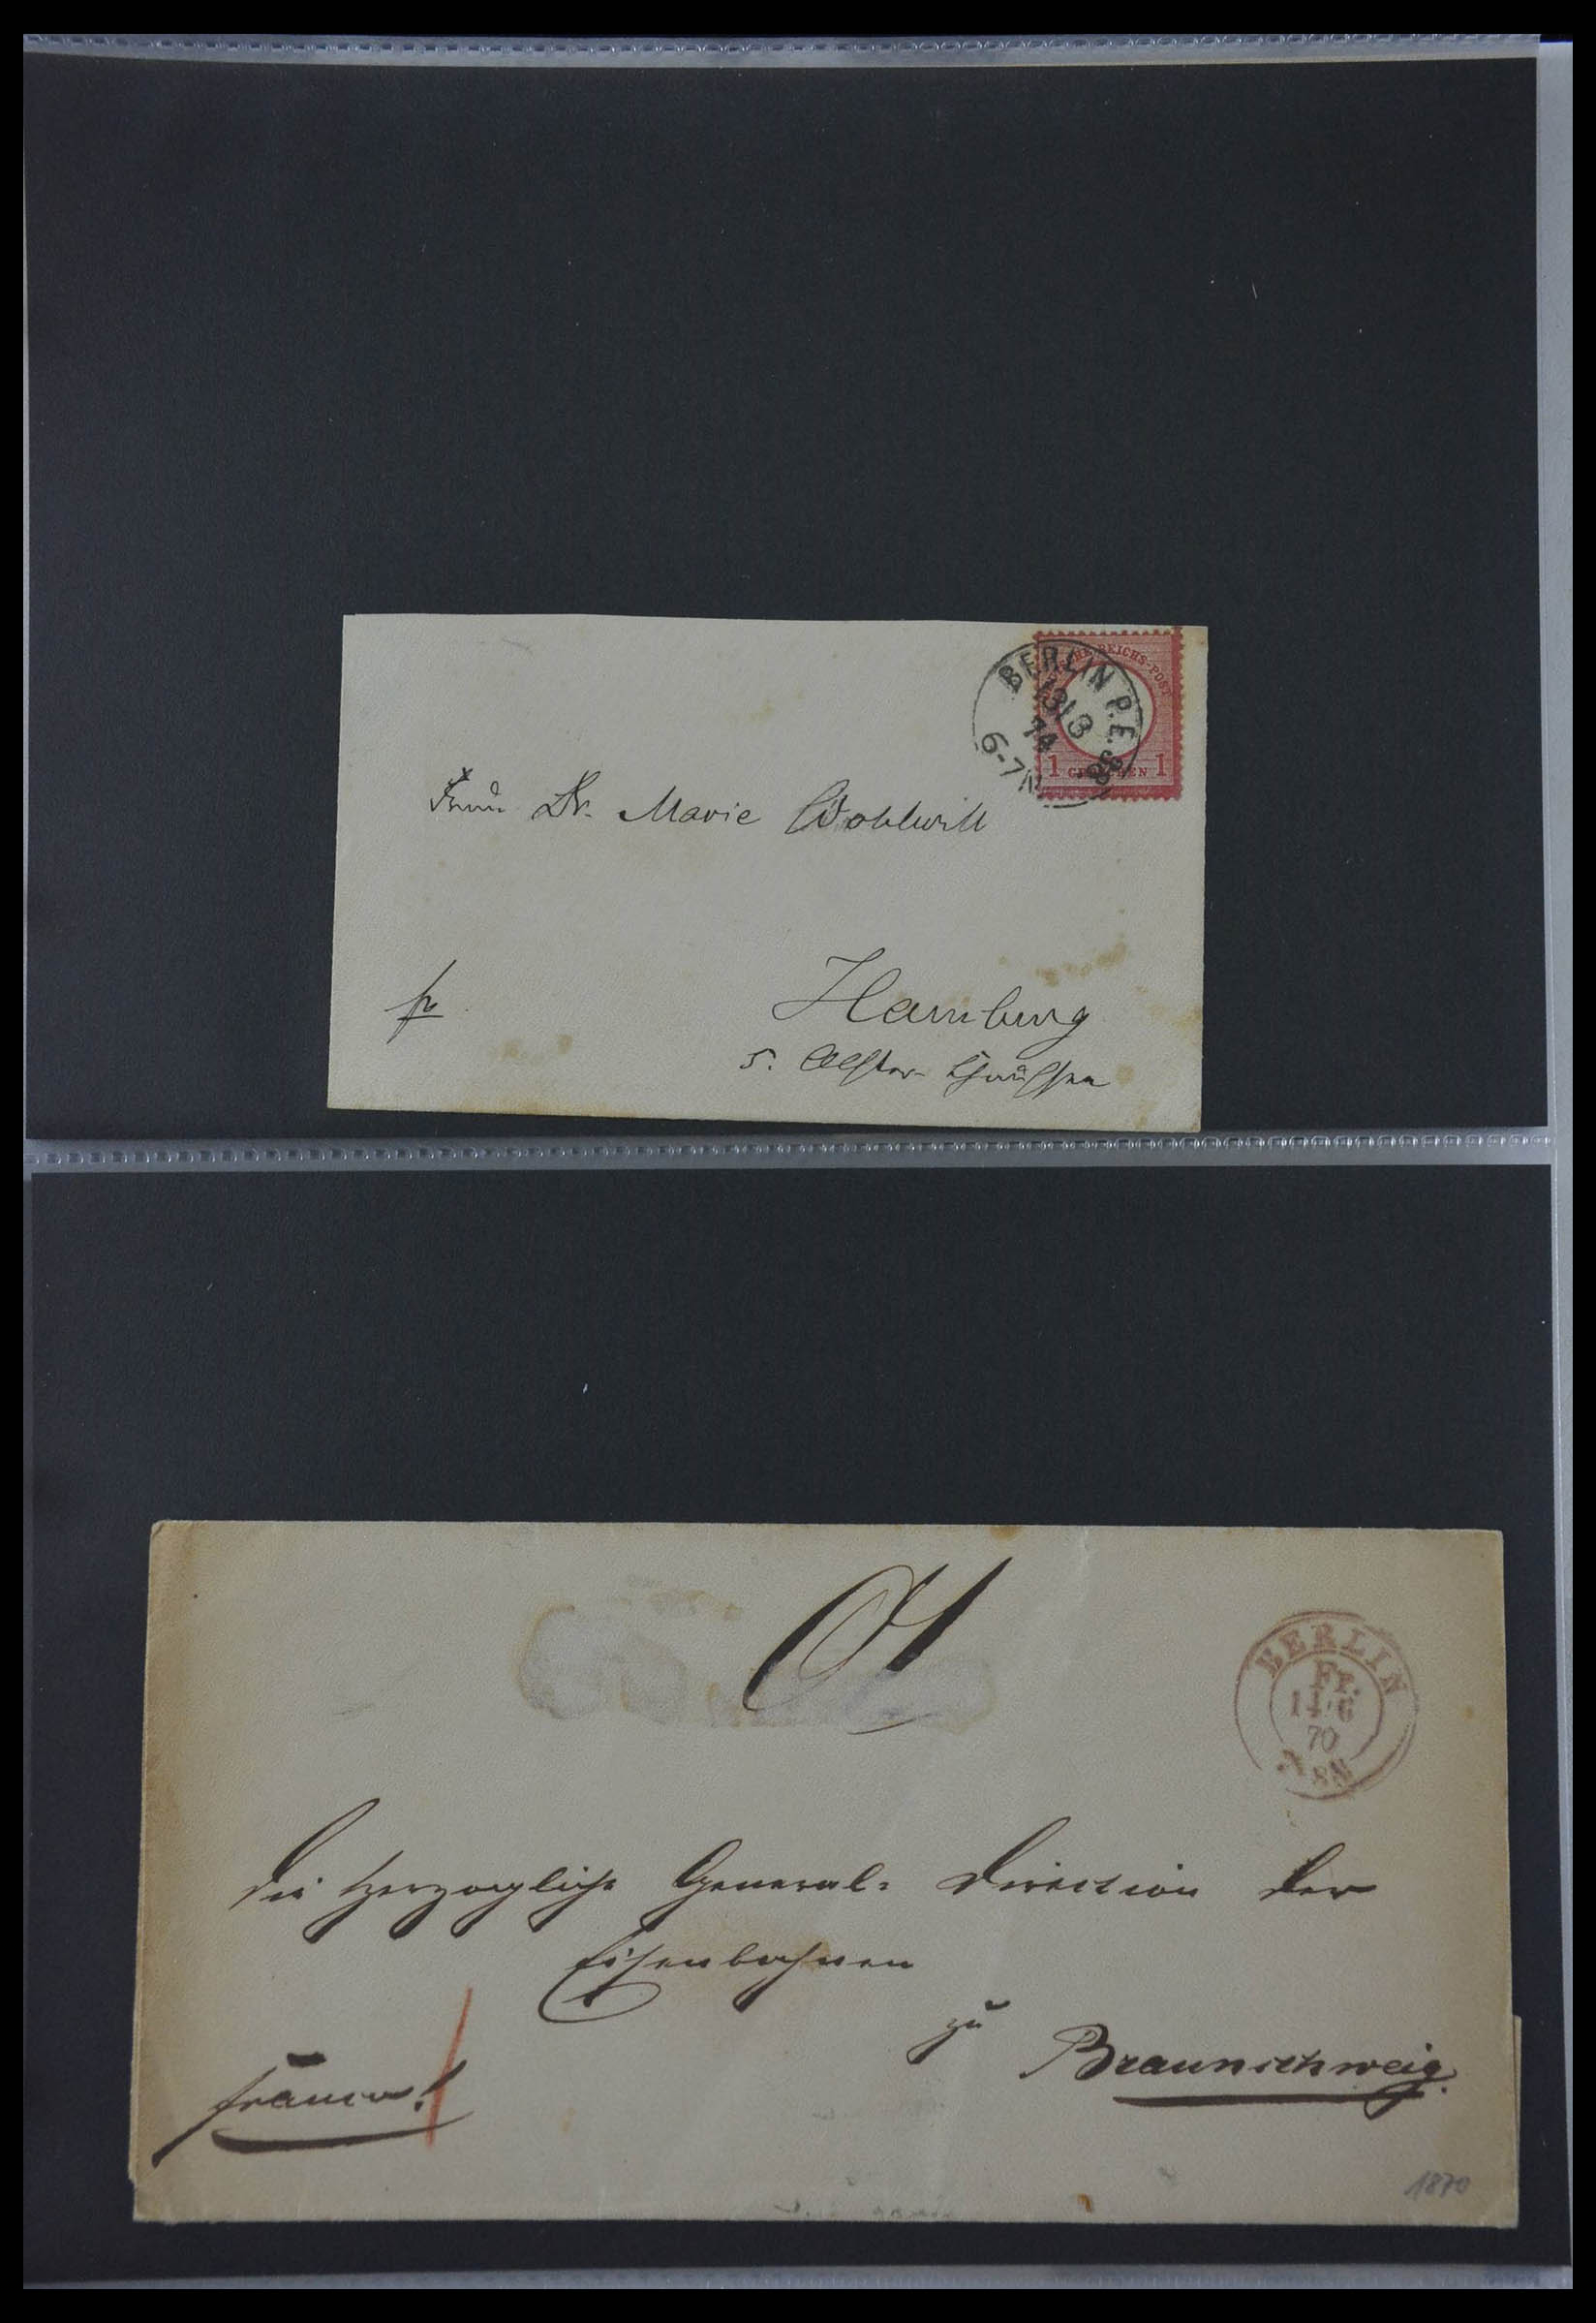 BERLIN P.E. 
13 3
74
6-7N
REICHS-POST
1 GROSCHEN 1
Frau Dr. Marie Wohlwill
fr
Hamburg
5. Alster-
BERLIN
Fr.
70
7-8N
Die Herzogliche General-Direction der
Eisenbahnen
zu
Braunschweig.
franco!
1870